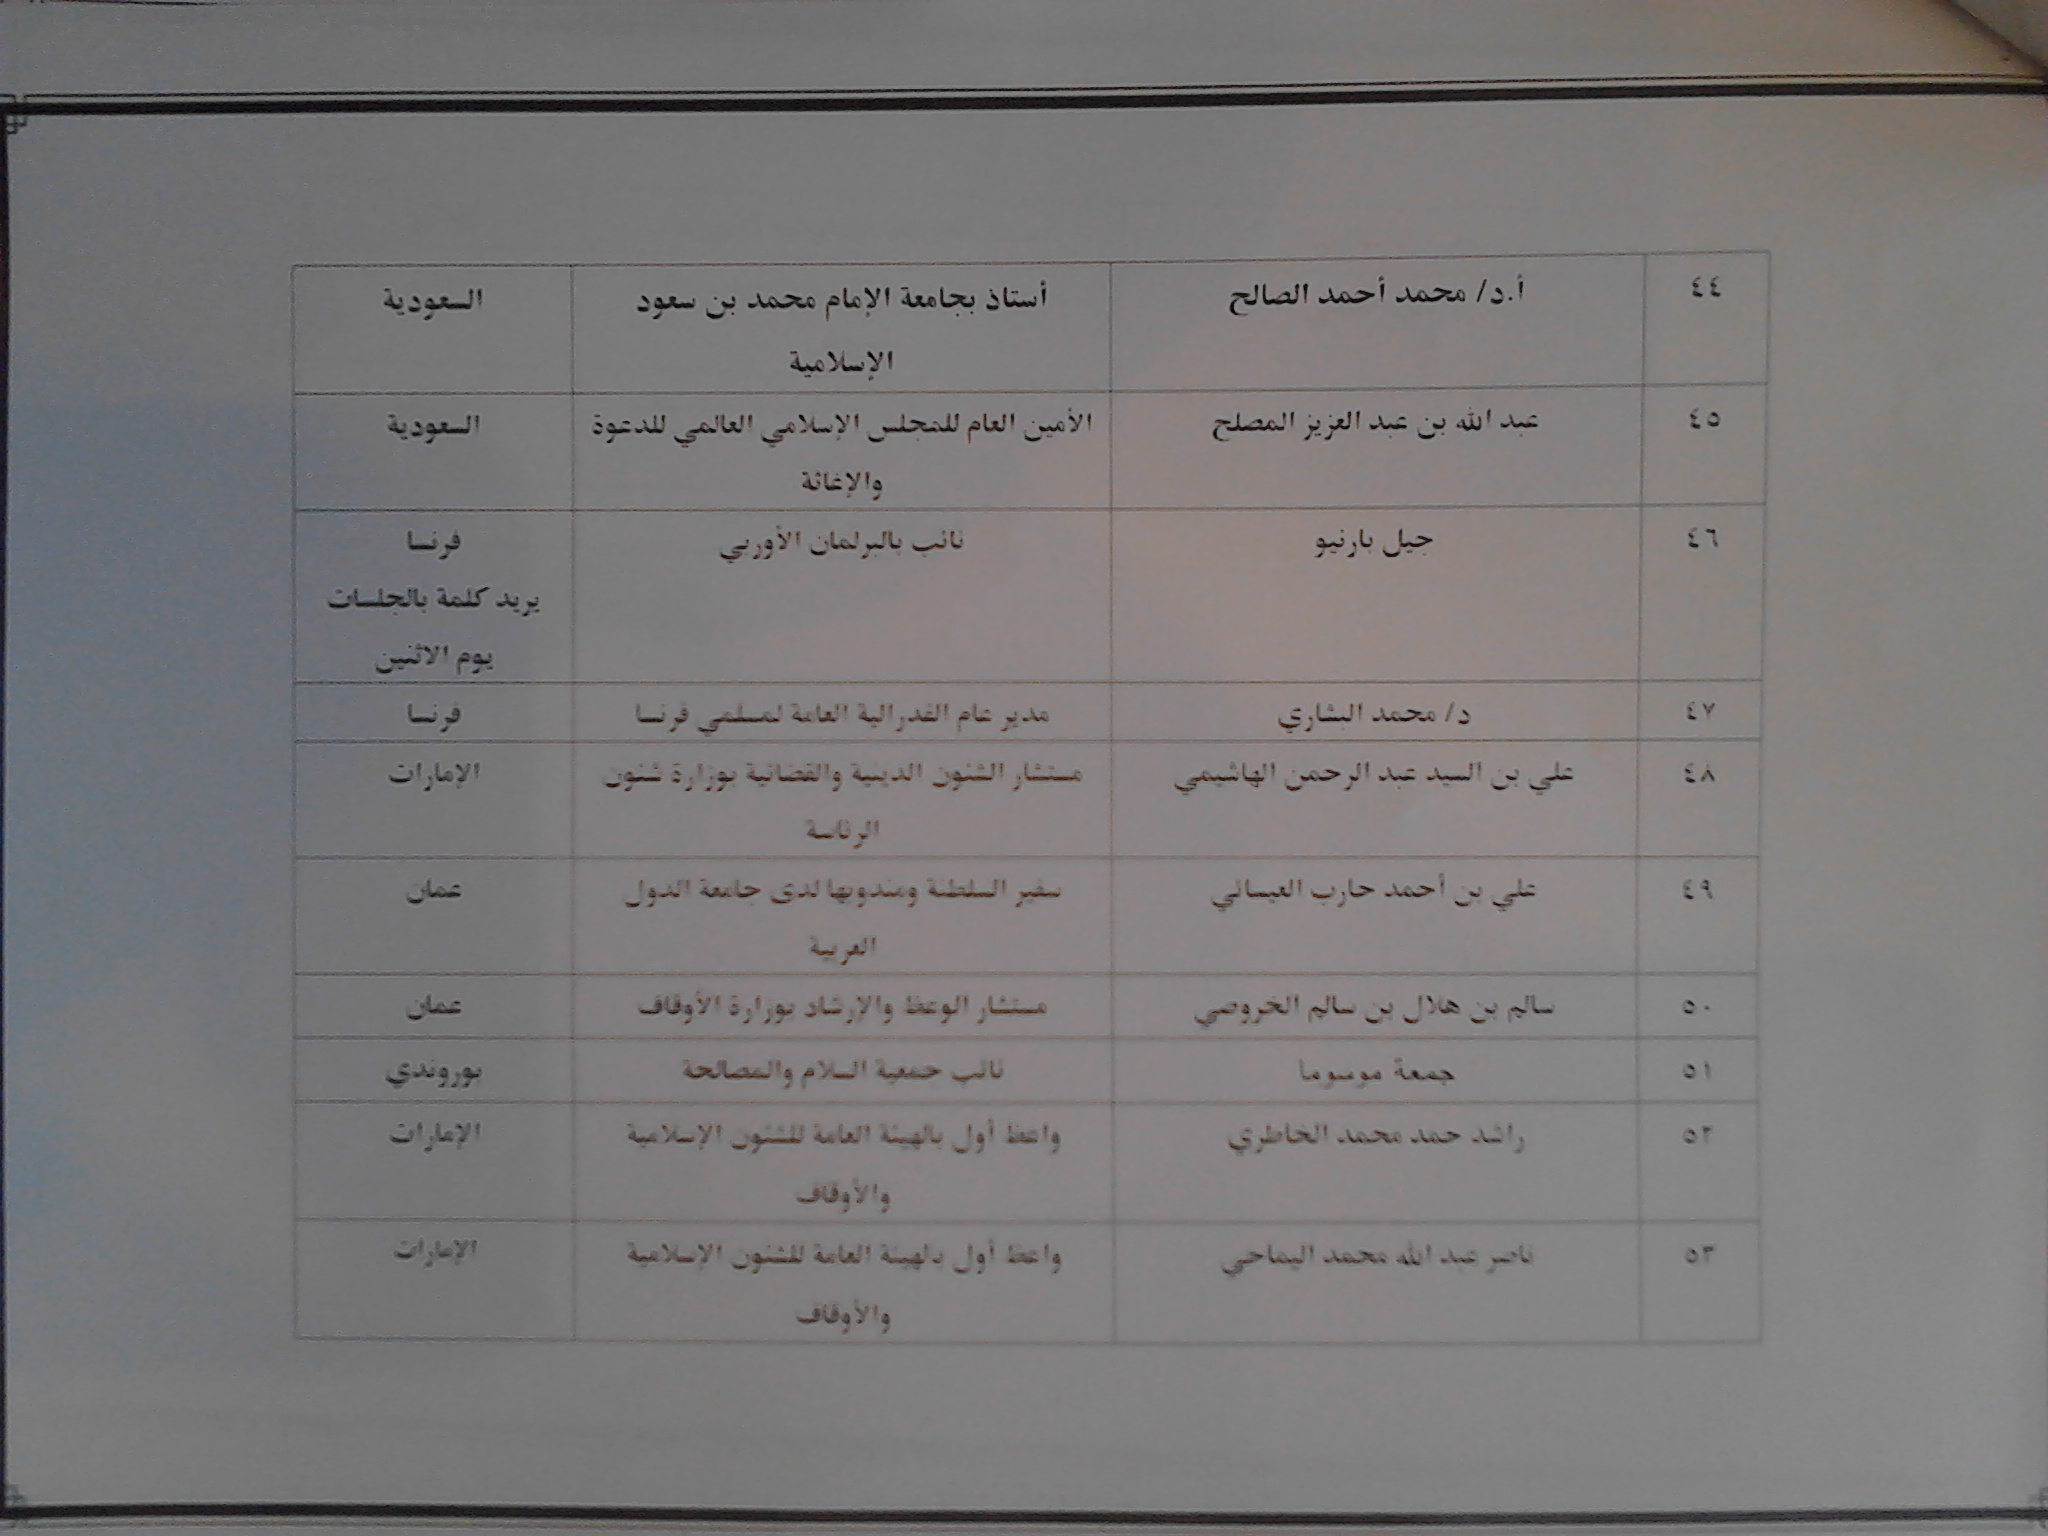 ٤٤ أ.د/ محمد أحمد الصالح أستاذ بجامعة الإمام محمد بن سعود السعودية
الإسلامية
٤٥ عبد الله بن عبد العزيز المصلح الأمين العام للمجلس الإسلامي العالمي للدعوة السعودية
والإغاثة
٤٦ جيل بارنيو نائب بالبرلمان الأوربي فرنسا
يريد كلمة بالجلسات
يوم الاثنين
٤٧ د/ محمد البشاري مدير عام الفدرالية العامة لمسلمي فرنسا فرنسا
٤٨ علي بن السيد عبد الرحمن الهاشيمي مستشار الشئون الدينية والقضائية بوزارة شئون الإمارات
الرئاسة
٤٩ علي بن أحمد حارب العيسائي سفير السلطنة ومندوبها لدى جامعة الدول عمان
العربية
٥٠ سالم بن هلال بن سالم الخروصي مستشار الوعظ والإرشاد بوزارة الأوقاف عمان
٥١ جمعة موسوما نائب جمعية السلام والمصالحة بوروندي
٥٢ راشد حمد محمد الخاطري واعظ أول بالهيئة العامة للشئون الإسلامية الإمارات
والأوقاف
٥٣ ناصر عبد الله محمد اليماحي واعظ أول دلهيئة العامة للشئون الإسلامية الإمارات
والأوقاف